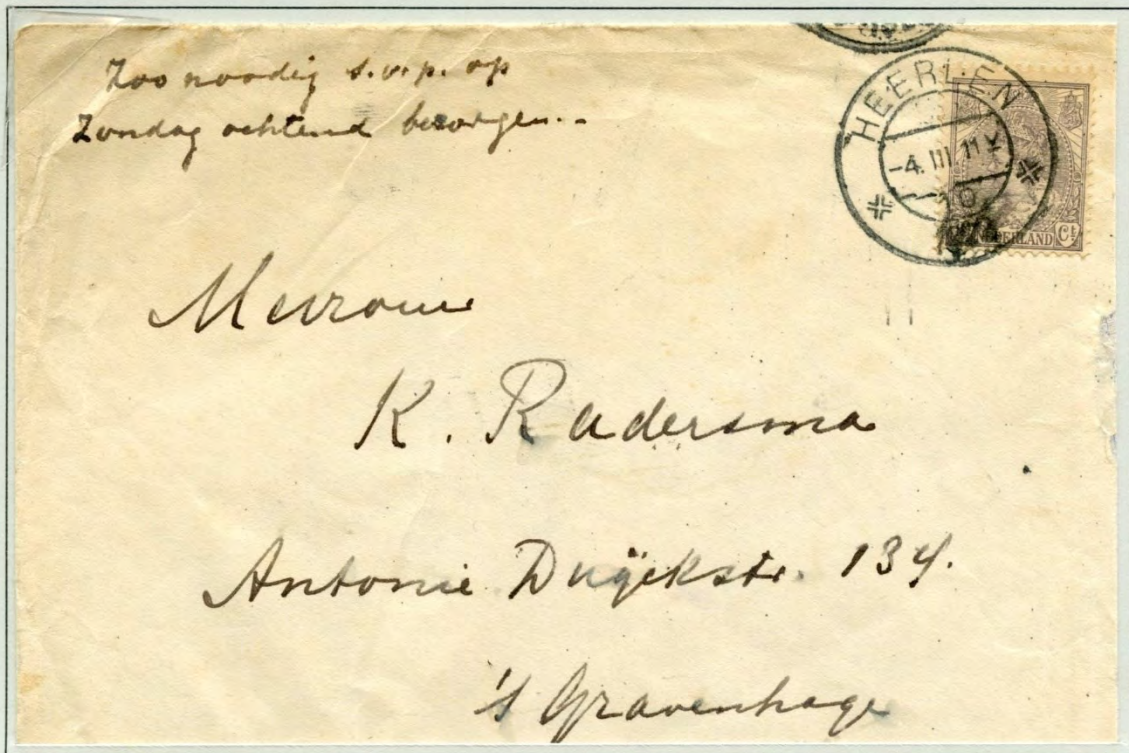 Zoo noodig s.v.p. op
Zondag ochtend bezorgen.-
HEERLEN
-4.III.11 V
NEDERLAND Ct
Mevrouw
K. Radersma
Antonie Duijckstr. 134.
's Gravenhage